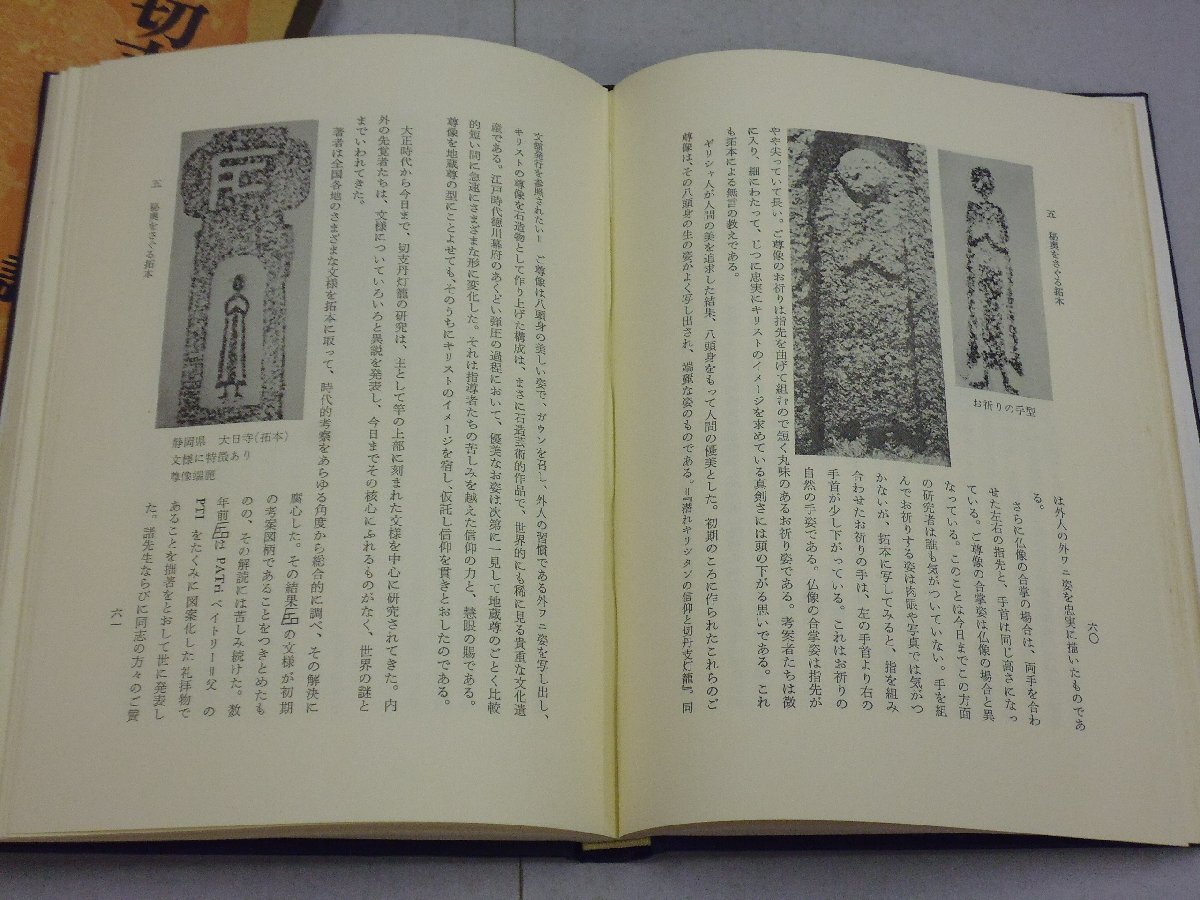 五　秘奥をさぐる拓本
六〇
お祈りの手型
は外人の外ワニ姿を忠実に描いたものであ
る。
さらに仏像の合掌の場合は、両手を合わ
せた左右の指先と、手首は同じ高さになっ
ている。ご尊像の合掌姿は仏像の場合と異
なっている。このことは今日までこの方面
の研究者は誰も気がついていない。手を組
んでお祈りする姿は肉眼や写真では気がつ
かないが、拓本に写してみると、指を組み
合わせたお祈りの手は、左の手首より右の
手首が少し下がっている。これはお祈りの
自然の手姿である。仏像の合掌姿は指先が
やや尖っていて長い。ご尊像のお祈りは指先を曲げて組むので短く丸味のあるお祈り姿である。考案者たちは微
に入り、細にわたって、じつに忠実にキリストのイメージを求めている真剣さには頭の下がる思いである。これ
も拓本による無言の教えである。
ギリシャ人が人間の美を追求した結果、八頭身をもって人間の優美とした。初期のころに作られたこれらのご
尊像は、その八頭身の生の姿かよく写し出され、端麗な姿のものである。＝『潜れキリシタンの信仰と切丹支灯籠』、同
文類発行を参照されたい＝　ご尊像は八頭身の美しい姿で、ガウンを召し、外人の習慣である外ワニ姿を写し出し、
キリストの尊像を石造物として作り上げた構成は、まさに石造芸術的作品で、世界的にも稀に見る貴重な文化遺
産である。江戸時代徳川幕府のあくどい弾圧の過程において、優美なお姿は次第に一見して地蔵尊のごとく比較
的短い間に急速にさまざまな形に変化した。それは指導者たちの苦しみを越えた信仰の力と、慧眼の賜である。
尊像を地蔵尊の型にことよせても、そのうちにキリストのイメージを宿し、仮託し信仰を貫きとおしたのである。
大正時代から今日まで、切支丹灯籠の研究は、主として竿の上部に刻まれた文様を中心に研究されてきた。内
外の先覚者たちは、文様についていろいろと異説を発表し、今日までその核心にふれるものがなく、世界の謎と
までいわれてきた。
著者は全国各地のさまざまな文様を拓本に取って、時代的考察をあらゆる角度から総合的に調べ、その解決に
腐心した。その結果の文様が初期
の考案図柄であることをつきとめたも
のの、その解読には苦しみ続けた。数
年前は PATri ペイトリーリ父 の
PTI をたくみに図案化した礼拝物で
あることを拙著をとおして世に発表し
た。諸先生ならびに同志の方々のご賛
静岡県　大日寺（拓本）
文様に特徴あり
尊像端麗
五　秘奥をさぐる拓本
六一
切支